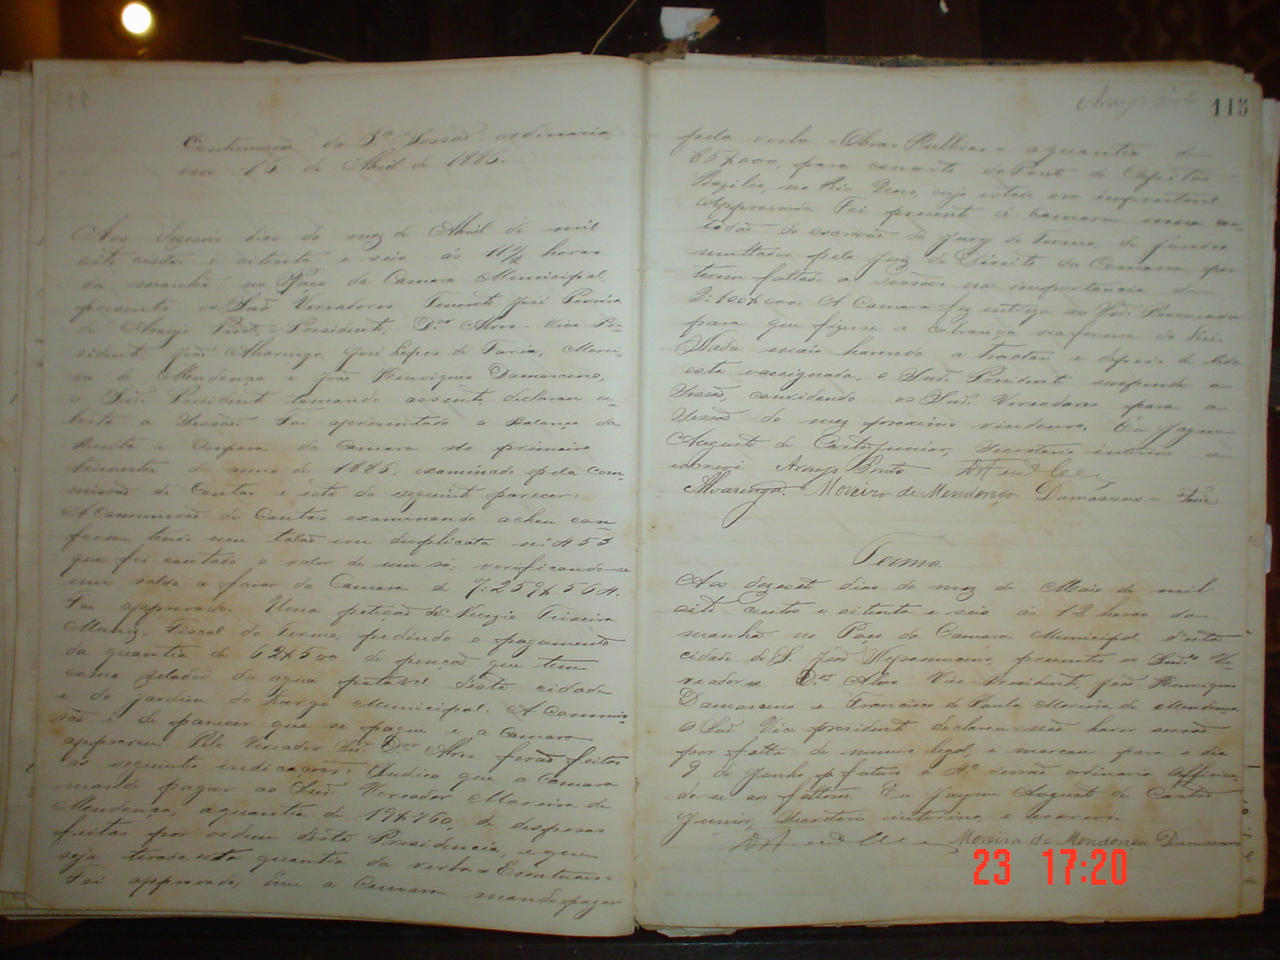 Continuação da 3ª Sessão ordinaria
em 16 de Abril de 1886.
Aos deseseis dias do mez de Abril de mil
oito centos e oitenta e seis ás 11½ horas
da manhã, no Paço da Camara Municipal
presente os Snrs Vereadores Tenente José Pereira
de Araujo Porto, Presidente, Dor Alves Vice Pre-
sidente, João Alvarenga, José Lopes de Faria, Morei-
ra de Mendonça e João Henriques Damasceno,
o Snr. Presidente tomando assento, declarou a-
berta a Sessão. Foi apresentado o Balanço da
Receita e Despesa da Camara do primeiro
trimestre do anno de 1886, examinado pela com-
missão de Contas e esta do seguinte parecer:
A Commissão de Contas examinando achou con-
forme, tendo um talão em duplicata nº 453
que foi contado o valor de um só; verificando-se
um saldo a favor da Camara de 7:259$564.
Foi approvado. Uma petição de Teixeira
Muniz, Fiscal do Termo, pedindo o pagamento
da quantia de 62$500 de que tem
como zelador da agua potavel desta cidade
e do jardim do Largo Municipal. A Commis-
são é de parecer que se pague e a camara
approvou. Pelo Vereador Snr Dor Alves forão feitas
as seguintes indicações: Indico que a Camara
mande pagar ao Snr. Vereador Moreira de
Mendonça, a quantia de 19$760, de despesas
feitas por ordem desta Presidencia, e que
seja tirada esta quantia da verba Eventuaes
Foi approvado; Que a Camara mande pagar
Araujo Porto
115
pela verba - Obras Publicas - a quantia de
85$000, para concerto da Ponte do Capitão
Bazilio, no Rio, cujo estado era
Approvada. Foi presente á Camara uma
do escrivão do Jury do Termo, de jurados
multados pelo Juiz de Direito da Comarca, por
terem faltado a Sessões na importancia de
2:100$000. A Camara fez entrega ao Snr. Procurador
para que figure a cobrança na forma da Lei.
Nada mais havendo a tractar e depois de lida
esta e assignada, o Snr. Presidente suspende a
Sessão, convidando os Snrs. Vereadores para a
Sessão do mez proximo vindouro. Eu
Augusto de Castro Junior, Secretario interino a
escrevi Araujo Porto
Alvarenga. Moreira de Mendonça Damasceno - Faria
Termo
Aos dezesete dias do mez de Maio de mil
oito centos e oitenta e seis ás 12 horas da
manhã no Paço da Camara Municipal d'esta
cidade de S. João Nepomuceno, presentes os Snrs. Ve-
readores Dor Alves Vice-Presidente, João Henriques
Damasceno e Francisco de Paula Moreira de Mendonça
o Snr. Vice presidente declarou não haver sessão
por falta de numero legal, e marcou para o dia
9 de Junho p. futuro a 4ª sessão ordinaria officiando-
do-se aos faltosos. Eu Augusto de Castro
Junior, Secretario interino, o escrevi.
Moreira de Mendonça Damasceno
23 17:20